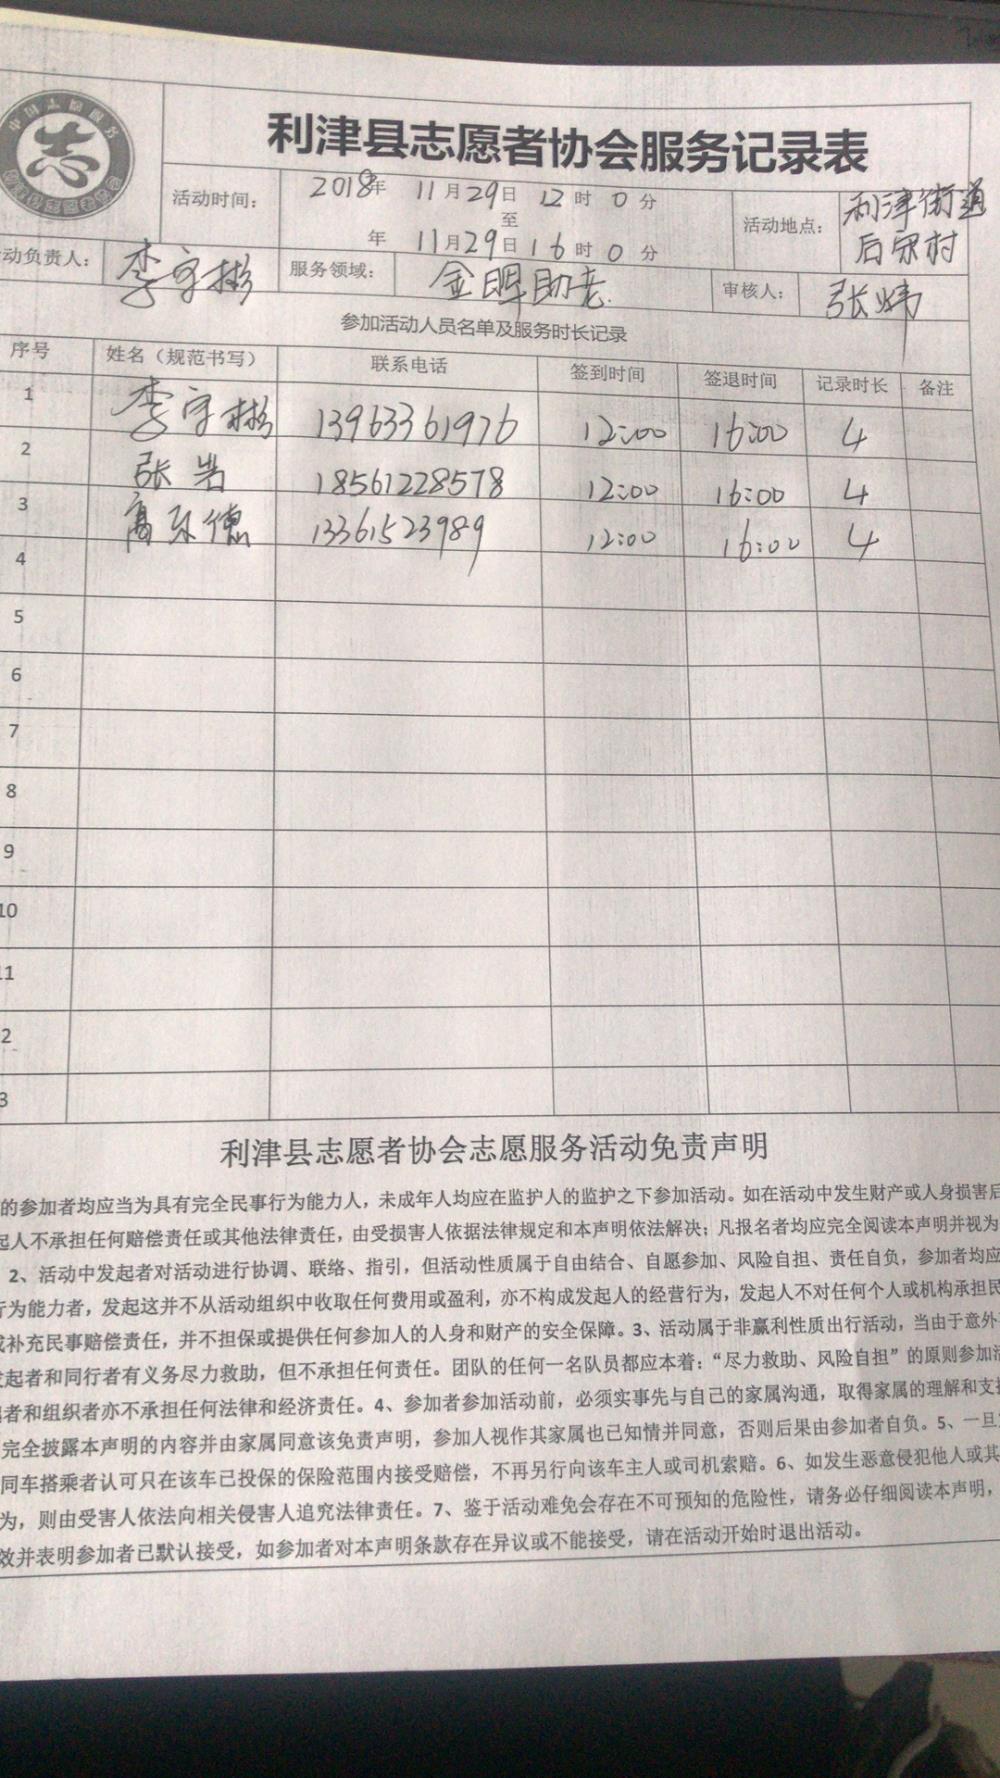 中国志愿服务
志
利津县志愿者协会服务记录表
活动时间： 2018年 11月29日 12时 0分
至
年 11月29日16时 0分
活动地点： 利津街道
后宋村
动负责人： 李守彬 服务领域： 金晖助老 审核人： 张炜
参加活动人员名单及服务时长记录
序号 姓名（规范书写） 联系电话 签到时间 签退时间 记录时长 备注
1 李守彬 13963361976 12:00 16:00 4
2 张岩 18561228578 12:00 16:00 4
3 高东德 13361523989 12:00 16:00 4
4
5
6
7
8
9
10
11
2
3
利津县志愿者协会志愿服务活动免责声明
的参加者均应当为具有完全民事行为能力人，未成年人均应在监护人的监护之下参加活动。如在活动中发生财产或人身损害后
起人不承担任何赔偿责任或其他法律责任，由受损害人依据法律规定和本声明依法解决；凡报名者均应完全阅读本声明并视为
2、活动中发起者对活动进行协调、联络、指引，但活动性质属于自由结合、自愿参加、风险自担、责任自负，参加者均应
行为能力者，发起这并不从活动组织中收取任何费用或盈利，亦不构成发起人的经营行为，发起人不对任何个人或机构承担民
或补充民事赔偿责任，并不担保或提供任何参加人的人身和财产的安全保障。3、活动属于非赢利性质出行活动，当由于意外
发起者和同行者有义务尽力救助，但不承担任何责任。团队的任何一名队员都应本着：“尽力救助、风险自担”的原则参加活
起者和组织者亦不承担任何法律和经济责任。4、参加者参加活动前，必须实事先与自己的家属沟通，取得家属的理解和支持
完全披露本声明的内容并由家属同意该免责声明，参加人视作其家属也已知情并同意，否则后果由参加者自负。5、一旦
同车搭乘者认可只在该车已投保的保险范围内接受赔偿，不再另行向该车主人或司机索赔。6、如发生恶意侵犯他人或其
为，则由受害人依法向相关侵害人追究法律责任。7、鉴于活动难免会存在不可预知的危险性，请务必仔细阅读本声明，
效并表明参加者已默认接受，如参加者对本声明条款存在异议或不能接受，请在活动开始时退出活动。